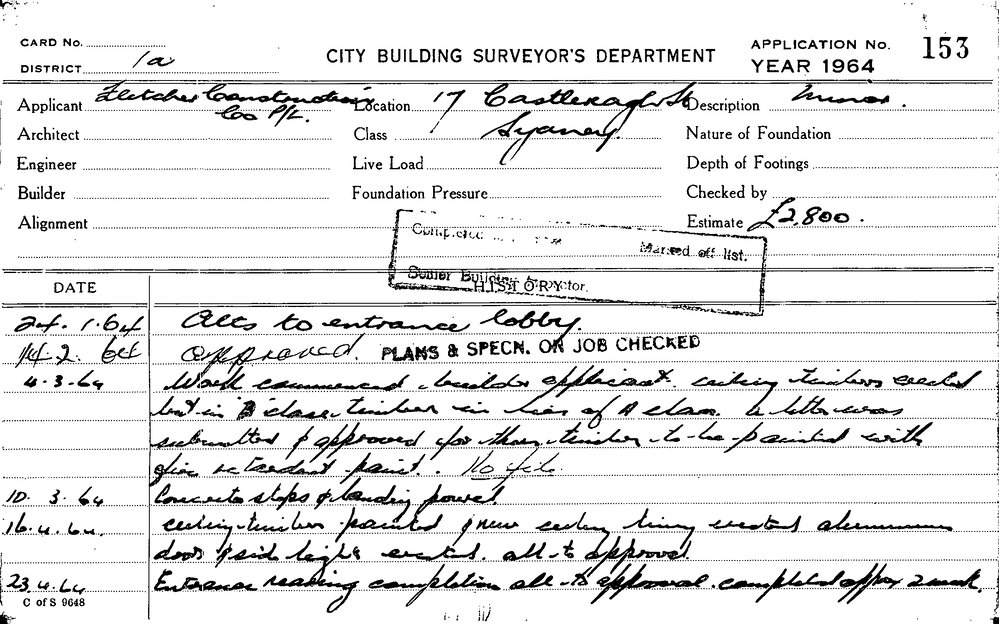 CARD No.
DISTRICT 1a
CITY BUILDING SURVEYOR'S DEPARTMENT
APPLICATION No. 153
YEAR 1964
Applicant Fletcher Construction Co P/L.
Location 17 Castlereagh St Sydney.
Description Minor.
Architect
Class
Nature of Foundation
Engineer
Live Load
Depth of Footings
Builder
Foundation Pressure
Checked by
Alignment
Estimate £2,800.
Completed
Marked off list.
Senior Building Inspector.
DATE
HISTORY
24.1.64 Alts to entrance lobby.
14.2.64 approved. PLANS & SPECN. ON JOB CHECKED
4.3.64 Work commenced builder applicant. ceiling timbers erected
but in B class timber in lieu of A class. a letter was
submitted & approved for them timber to be painted with
fire retardant paint.
10.3.64 Concrete steps & landing poured
16.4.64. ceiling timbers painted & new ceiling lining erected aluminium
door & side light erected. all to approval.
23.4.64 Entrance nearing completion all to approval. completed approx 2 week.
C of S 9648